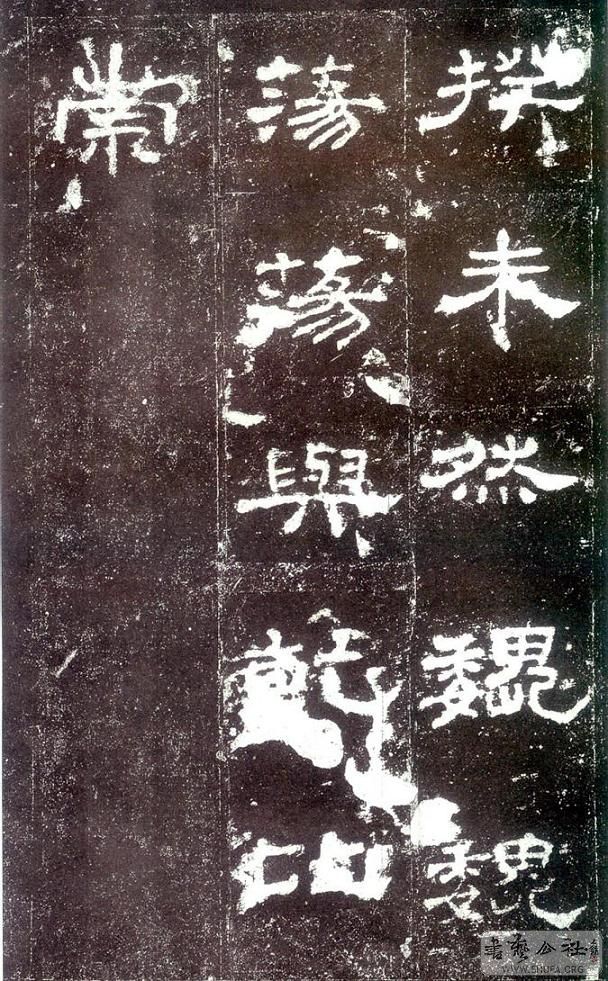 揆未然巍巍
蕩蕩與乾比
崇
書藝公社
WWW.SHUFA.ORG